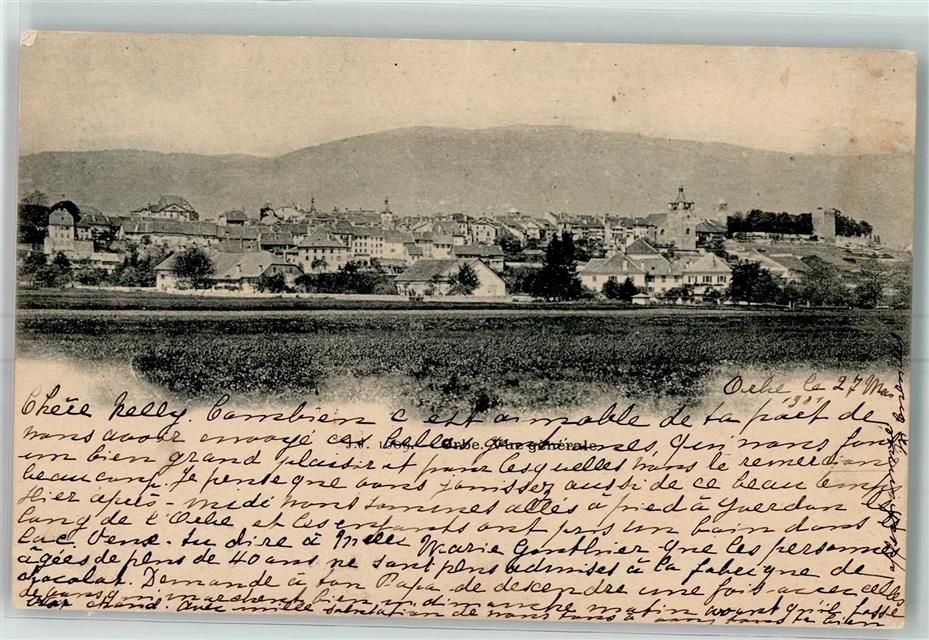 Orbe le 27 Mai
1901
Chère Nelly. Combien c'est aimable de ta part de
nous avoir envoyé ces belles, qui nous font
Orbe. Vue générale
un bien grand plaisir et pour lesquelles nous te remercions
beaucoup. Je pense que vous jouissez aussi de ce beau temps
Hier après-midi nous sommes allés à pied à Yverdon
long de l'Orbe et les enfants ont pris un bain dans le
lac. dire à Melle Marie Gonthier que les personnes
âgées de plus de 40 ans ne sont plus admises à la fabrique de
chocolat. Demande à ton Papa de descendre une fois avec
dimanche matin avant qu'il fasse
trop chaud. Avec mille de nous tous à vous tous